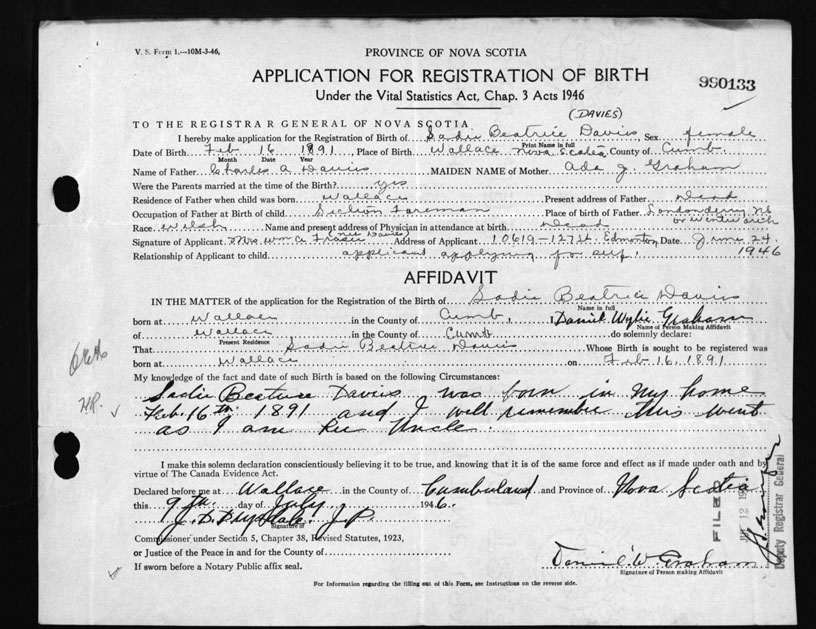 V. S. Form 1.—10M-3-46.
PROVINCE OF NOVA SCOTIA
APPLICATION FOR REGISTRATION OF BIRTH
990133
Under the Vital Statistics Act, Chap. 3 Acts 1946
(DAVIES)
TO THE REGISTRAR GENERAL OF NOVA SCOTIA
I hereby make application for the Registration of Birth of Sadie Beatrice Davies, Sex female
Print Name in full
Date of Birth Feb 16 1891 Place of Birth Wallace Nova Scotia County of Cumb.
Month Date Year
Name of Father Charles A Davies MAIDEN NAME of Mother Ada J. Graham
Were the Parents married at the time of the Birth? yes
Residence of Father when child was born Wallace Present address of Father Dead
Occupation of Father at Birth of child Section Foreman Place of birth of Father Londonderry NS
or
Race Welsh Name and present address of Physician in attendance at birth Dead
Signature of Applicant Mrs Wm A Fraser (nee Davies) Address of Applicant 10619-127 St. Edmonton Date June 24
1946
Relationship of Applicant to child applicant applying for self.
AFFIDAVIT
IN THE MATTER of the application for the Registration of the Birth of Sadie Beatrice Davies
Name in full
born at Wallace in the County of Cumb. I, Daniel Wylie Graham
Name of Person Making Affidavit
of Wallace in the County of Cumb do solemnly declare:
Present Residence
That Sadie Beatrice Davies Whose Birth is sought to be registered was
born at Wallace on Feb. 16. 1891
My knowledge of the fact and date of such Birth is based on the following Circumstances:
Sadie Beatrice Davies was born in my home
Feb. 16th 1891 and I well remember this event
as I am her Uncle.
I make this solemn declaration conscientiously believing it to be true, and knowing that it is of the same force and effect as if made under oath and by
virtue of The Canada Evidence Act.
Declared before me at Wallace in the County of Cumberland and Province of Nova Scotia
this 9th day of July 1946.
J.P.
Signature of
Commissioner under Section 5, Chapter 38, Revised Statutes, 1923,
or Justice of the Peace in and for the County of
If sworn before a Notary Public affix seal.
Daniel W. Graham
Signature of Person making Affidavit
For Information regarding the filling out of this Form, see Instructions on the reverse side.
FILED
Deputy Registrar General